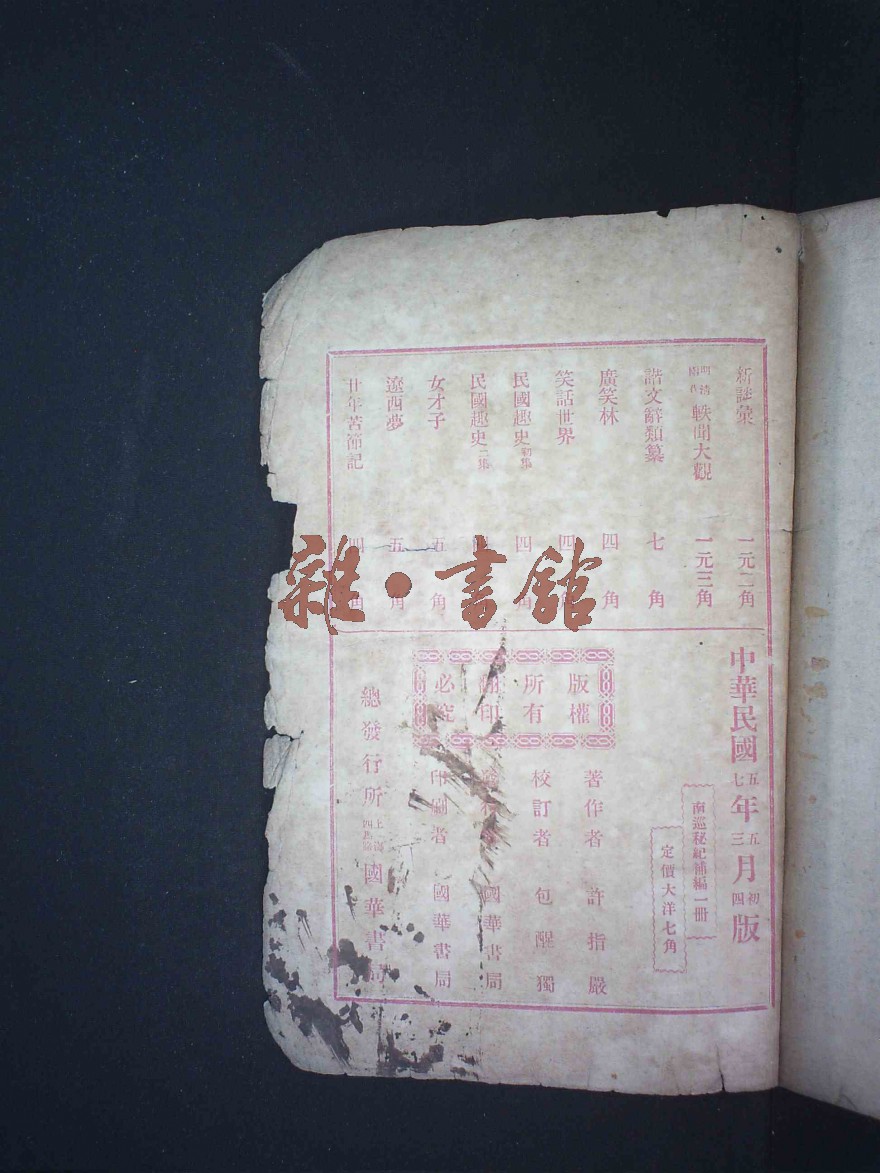 新談彙 一元二角
明清兩代 軼聞大觀 一元三角
諧文辭類纂 七角
廣笑林 四角
笑話世界 四角
民國趣史初集 四角
民國趣史二集 四
女才子 五角
遼西夢 五角
廿年苦節記 四角
雜·書館
中華民國五年五月初版
七年三月四版
南巡秘記補編一冊
定價大洋七角
版權
所有
翻印
必究
著作者 許指嚴
校訂者 包醒獨
國華書局
印刷者 國華書局
總發行所 上海四馬路 國華書局